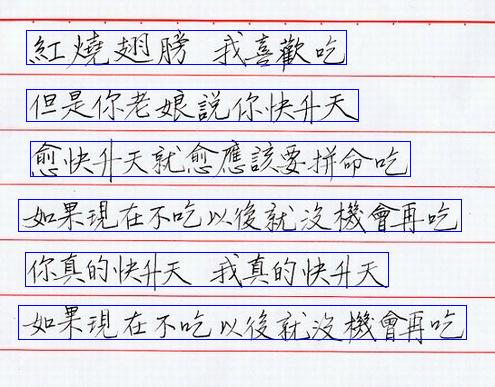 紅燒翅膀 我喜歡吃
但是你老娘說你快升天
愈快升天就愈應該要拼命吃
如果現在不吃以後就沒機會再吃
你真的快升天 我真的快升天
如果現在不吃以後就沒機會再吃